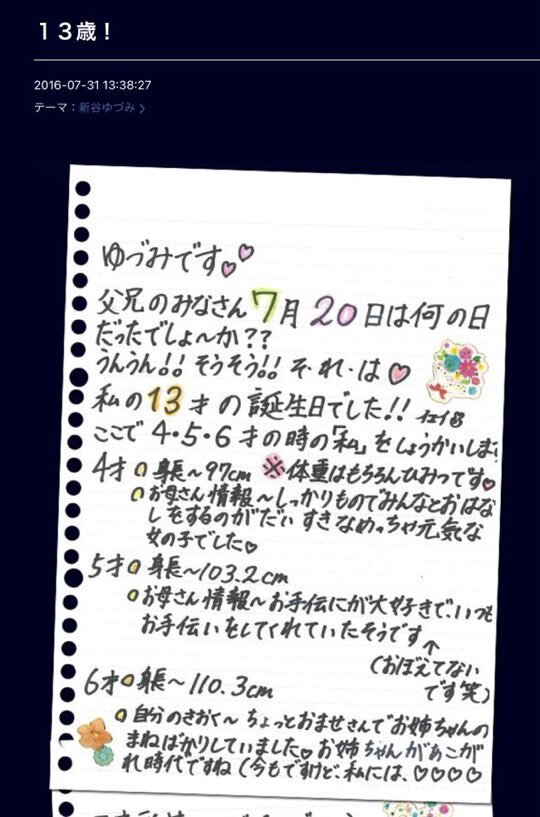 13歳！
2016-07-31 13:38:27
テーマ：新谷ゆづみ
ゆづみです♡♡
父兄のみなさん7月20日は何の日
だったでしょ〜か??
うんうん!!そうそう!!そ・れ・は♡
私の13才の誕生日でした!!イェイ
ここで4・5・6才の時の「私」をしょうかいしま
4才 身長〜97cm ※体重はもちろんひみつです♡
お母さん情報〜しっかりものでみんなとおはな
しをするのがだいすきなめっちゃ元気な
女の子でした♡
5才 身長〜103.2cm
お母さん情報〜お手伝にが大好きで、いつも
お手伝いをしてくれていたそうです
↑
(おぼえてない
です笑)
6才 身長〜110.3cm
自分のきおく〜ちょっとおませさんでお姉ちゃんの
まねばかりしていました♡お姉ちゃんがあこが
れ時代ですね(今もですけど、私には、♡♡♡♡